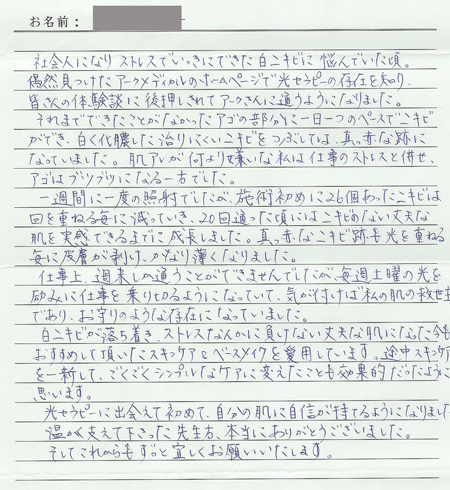 お名前：
社会人になりストレスでいっきにできた白ニキビに悩んでいた頃。
偶然見つけたアークメディカルのホームページで光セラピーの存在を知り、
皆さんの体験談に後押しされてアークさんに通うようになりました。
それまでできたことがなかったアゴの部分に一日一つのペースでニキビ
ができ、白く化膿した治りにくいニキビをつぶしては、真っ赤な跡に
なっていました。肌アレが何より嫌いな私は仕事のストレスと併せ、
アゴはブツブツになる一方でした。
一週間に一度の照射でしたが、施術初めに26個あったニキビは
回を重ねる毎に減っていき、20回通った頃にはニキビのない丈夫な
肌を実感できるまでに成長しました。真っ赤なニキビ跡も光を重ねる
毎に皮膚が剥け、かなり薄くなりました。
仕事上、週末しか通うことができませんでしたが、毎週土曜の光を
励みに仕事を乗り切るようになっていて、気が付けば私の肌の救世主
であり、お守りのような存在になっていました。
白ニキビが落ち着き、ストレスなんかに負けない丈夫な肌になった今も
おすすめして頂いたスキンケアとベースメイクを愛用しています。途中スキンケア
を一新して、ごくごくシンプルなケアに変えたことも効果的だったように
思います。
光セラピーに出会えて初めて、自分の肌に自信が持てるようになりました
温かく支えて下さった先生方、本当にありがとうございました。
そしてこれからもずっと宜しくお願いいたします。